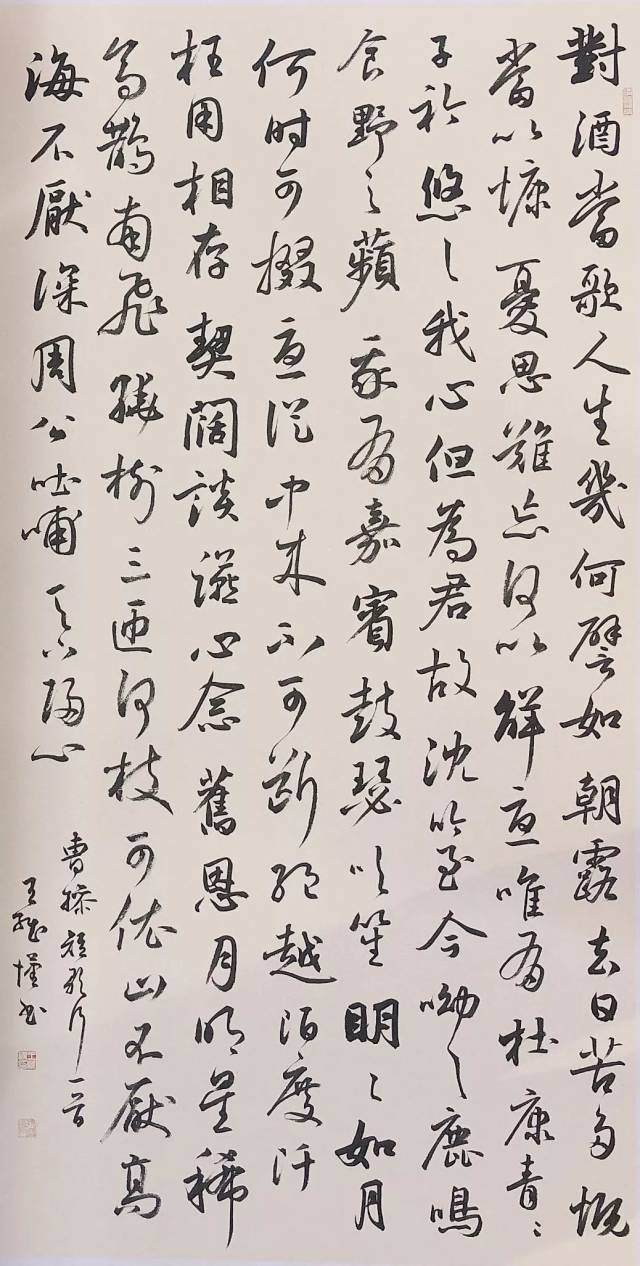 對酒當歌人生幾何譬如朝露去日苦多慨
當以慷憂思難忘何以解憂唯有杜康青々
子衿悠々我心但為君故沈吟至今呦々鹿鳴
食野之蘋我有嘉賓鼓瑟吹笙明々如月
何时可掇憂從中来不可断绝越陌度阡
枉用相存契闊談讌心念舊恩月明星稀
烏鵲南飛繞樹三匝何枝可依山不厭高
海不厭深周公吐哺天下歸心
曹操短歌行一首
王书